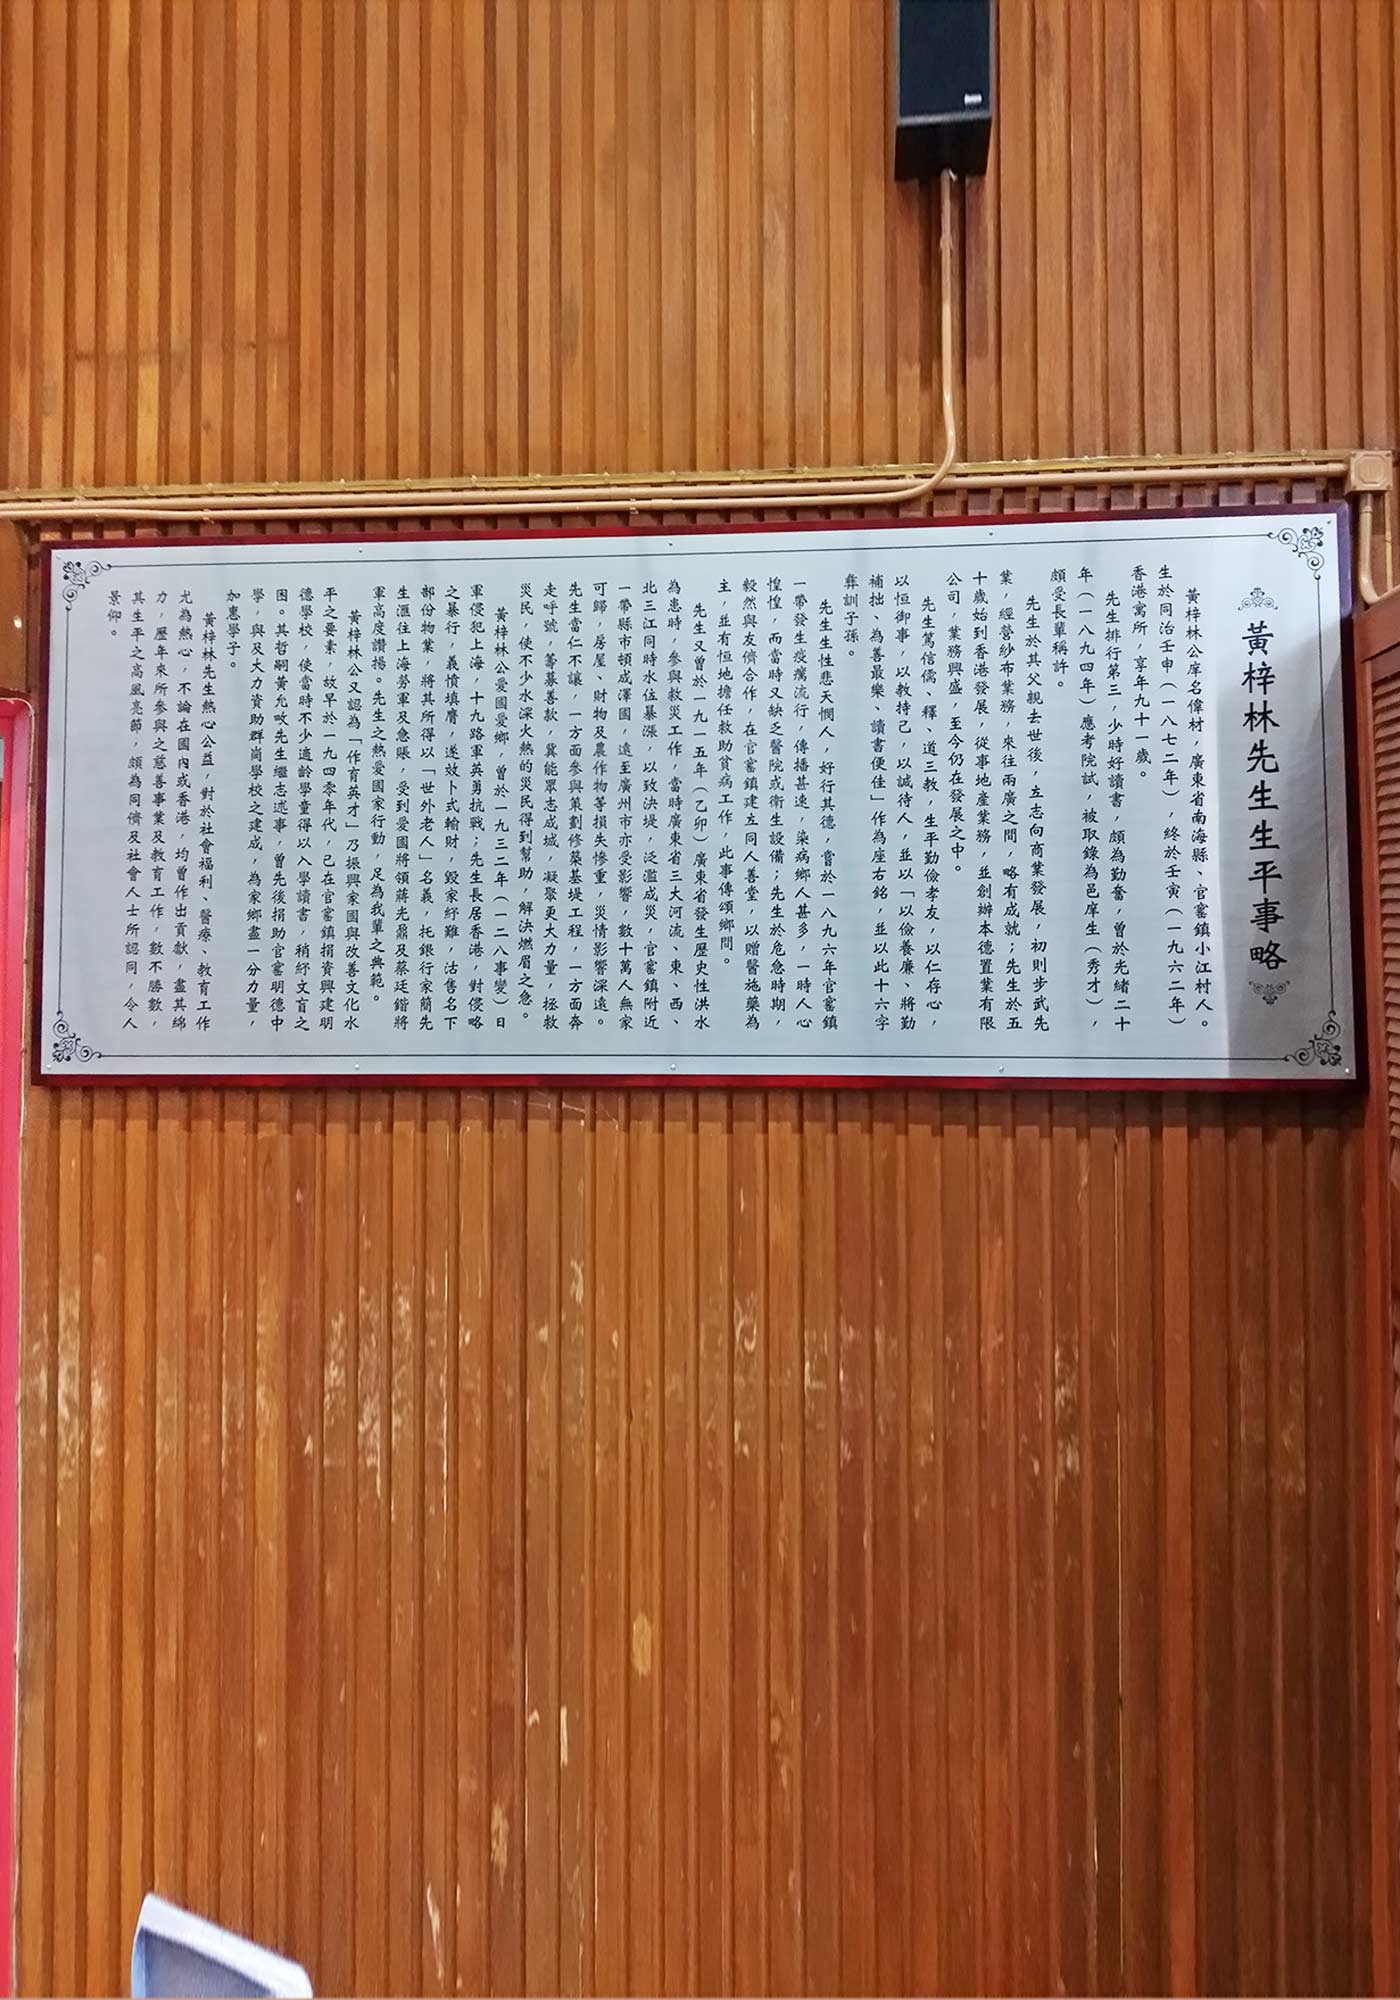 黃梓林先生生平事略
黃梓林公庠名偉材，廣東省南海縣、官窰鎮小江村人。
生於同治壬申（一八七二年），終於壬寅（一九六二年）
香港寓所，享年九十一歲。
先生排行第三，少時好讀書，頗為勤奮，曾於光緒二十
年（一八九四年）應考院試，被取錄為邑庠生（秀才），
頗受長輩稱許。
先生於其父親去世後，立志向商業發展，初則步武先
業，經營紗布業務，來往兩廣之間，略有成就；先生於五
十歲始到香港發展，從事地產業務，並創辦本德置業有限
公司，業務興盛，至今仍在發展之中。
先生篤信儒、釋、道三教，生平勤儉孝友，以仁存心，
以恒御事，以教持己，以誠待人，並以「以儉養廉、將勤
補拙、為善最樂、讀書便佳」作為座右銘，並以此十六字
彝訓子孫。
先生生性悲天憫人，好行其德，嘗於一八九六年官窰鎮
一帶發生疫癘流行，傳播甚速，染病鄉人甚多，一時人心
惶惶，而當時又缺乏醫院或衛生設備；先生於危急時期，
毅然與友儕合作，在官窰鎮建立同人善堂，以贈醫施藥為
主，並有恒地擔任救助貧病工作，此事傳頌鄉間。
先生又曾於一九一五年（乙卯）廣東省發生歷史性洪水
為患時，參與救災工作，當時廣東省三大河流、東、西、
北三江同時水位暴漲，以致決堤，泛濫成災，官窰鎮附近
一帶縣市頓成澤國，遠至廣州市亦受影響，數十萬人無家
可歸，房屋、財物及農作物等損失慘重，災情影響深遠。
先生當仁不讓，一方面參與策劃修築基堤工程，一方面奔
走呼號，籌募善款，冀能眾志成城，凝聚更大力量，拯救
災民，使不少水深火熱的災民得到幫助，解決燃眉之急。
黃梓林公愛國愛鄉，曾於一九三二年（一二八事變）日
軍侵犯上海，十九路軍英勇抗戰；先生長居香港，對侵略
之暴行，義憤填膺，遂效卜式輸財，毀家紓難，沽售名下
部份物業，將其所得以「世外老人」名義，托銀行家簡先
生滙往上海勞軍及急賬，受到愛國將領蔣光鼐及蔡廷鍇將
軍高度讚揚。先生之熱愛國家行動，足為我輩之典範。
黃梓林公又認為「作育英才」乃振興家國與改善文化水
平之要素，故早於一九四零年代，已在官窰鎮捐資興建明
德學校，使當時不少適齡學童得以入學讀書，稍紓文盲之
困。其哲嗣黃允畋先生繼志述事，曾先後捐助官窰明德中
學，與及大力資助群崗學校之建成，為家鄉盡一分力量，
加惠學子。
黃梓林先生熱心公益，對於社會福利、醫療、教育工作
尤為熱心，不論在國內或香港，均曾作出貢獻，盡其綿
力，歷年來所參與之慈善事業及教育工作，數不勝數，
其生平之高風亮節，頗為同儕及社會人士所認同，令人
景仰。